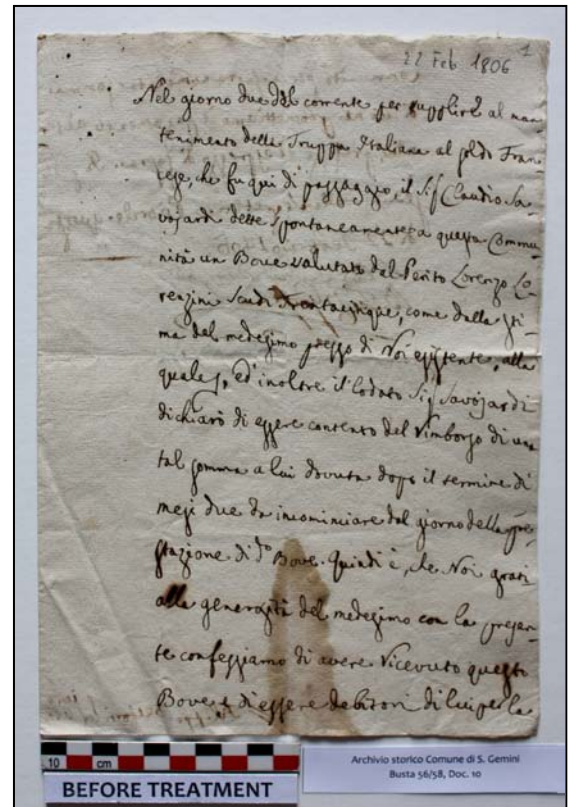 22 Feb 1806
1
Nel giorno due del corrente per supplire al man-
tenimento della Truppa Italiana al soldo Fran-
cese, che fu qui di passaggio, il Sig. Claudio Sa-
vojardi dette spontaneamente a questa Commu-
nità un Bove valutato dal Perito Lorenzo Lo-
renzini Scudi Trentacinque, come dalla sti-
ma del medesimo presso di Noi esistente, alla
quale ed inoltre il lodato Sig. Savojardi
dichiarò di essere contento del rimborso di una
tal somma a lui dovuta dopo il termine di
mesi due da incominciare dal giorno della pre-
stazione di do Bove. Quindi è, che Noi grati
alla generosità del medesimo con la presen-
te confessiamo di avere ricevuto questo
Bove e di essere debitori di lui per la
10 cm
BEFORE TREATMENT
Archivio storico Comune di S. Gemini
Busta 56/58, Doc. 10